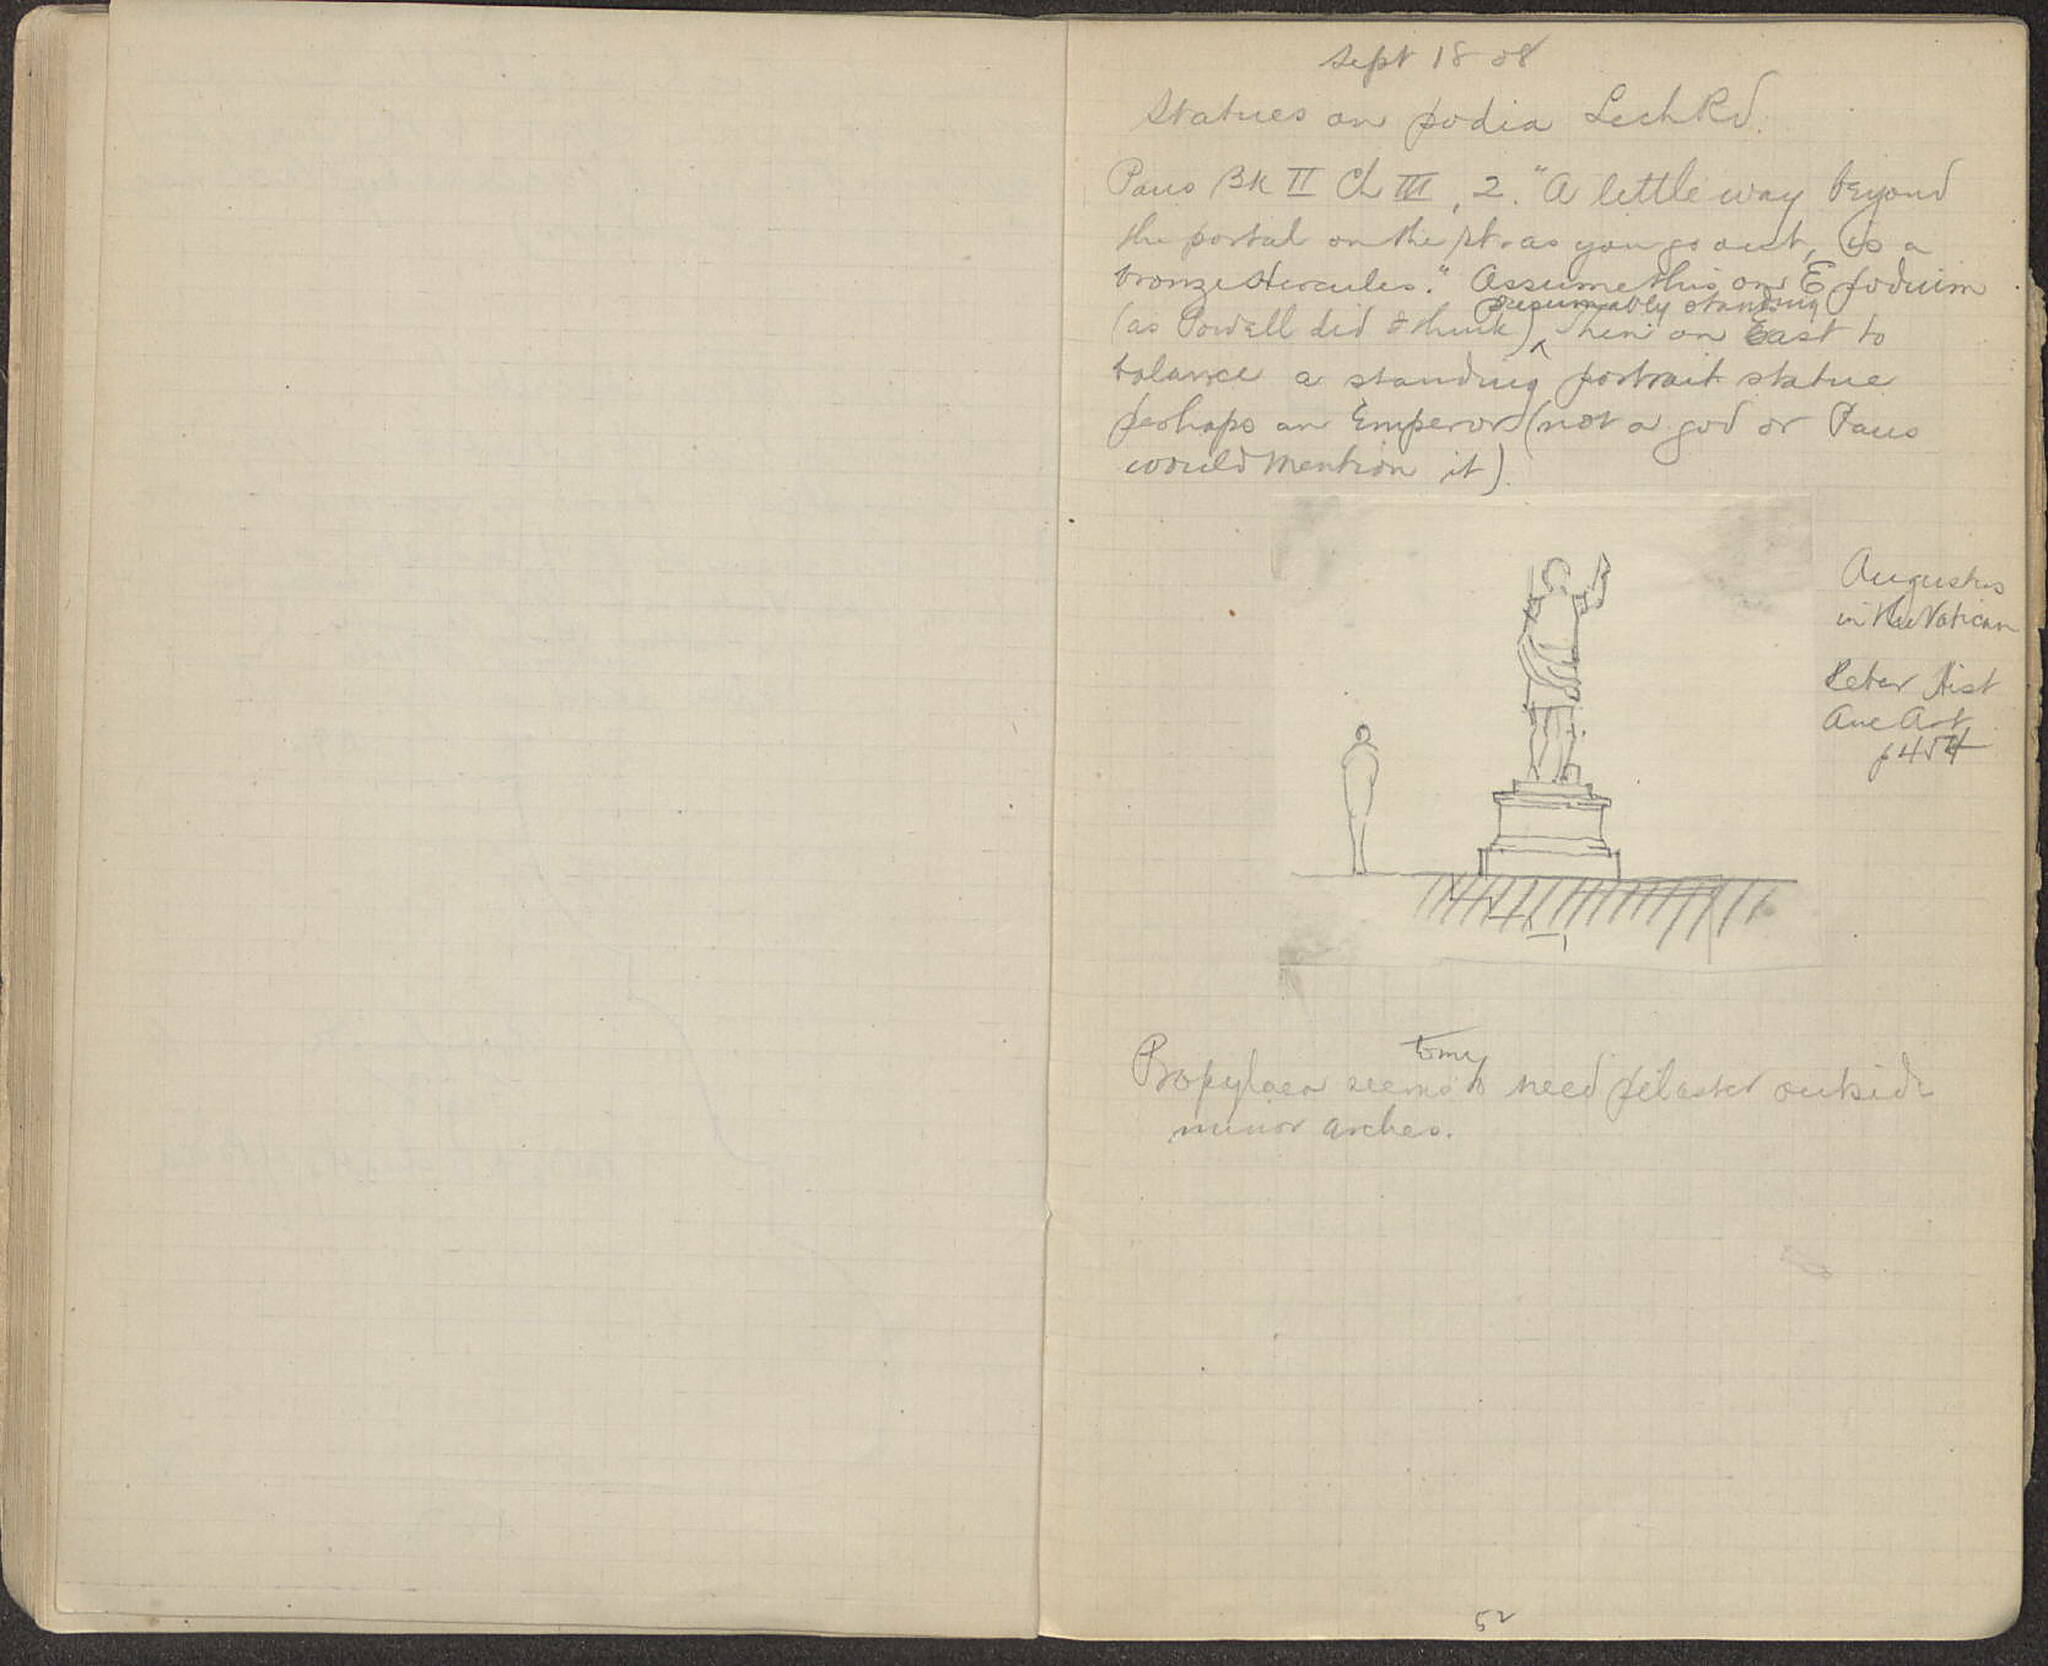 Sept 18 08
Statues on podia Lech Rd.
Paus Bk II Ch III, 2. "A little way beyond
the portal on the rt. as you go out, is a
bronze Hercules." Assume this on E podium
presumably standing
(as Powell did I think) ^ then on East to
balance a standing portrait statue
perhaps an Emperor (not a god or Paus
would mention it).
Augustus
in the Vatican
Reber Hist
Anc Art
p 454
to my
Propylaea seems to need pilaster outside
minor arches.
52